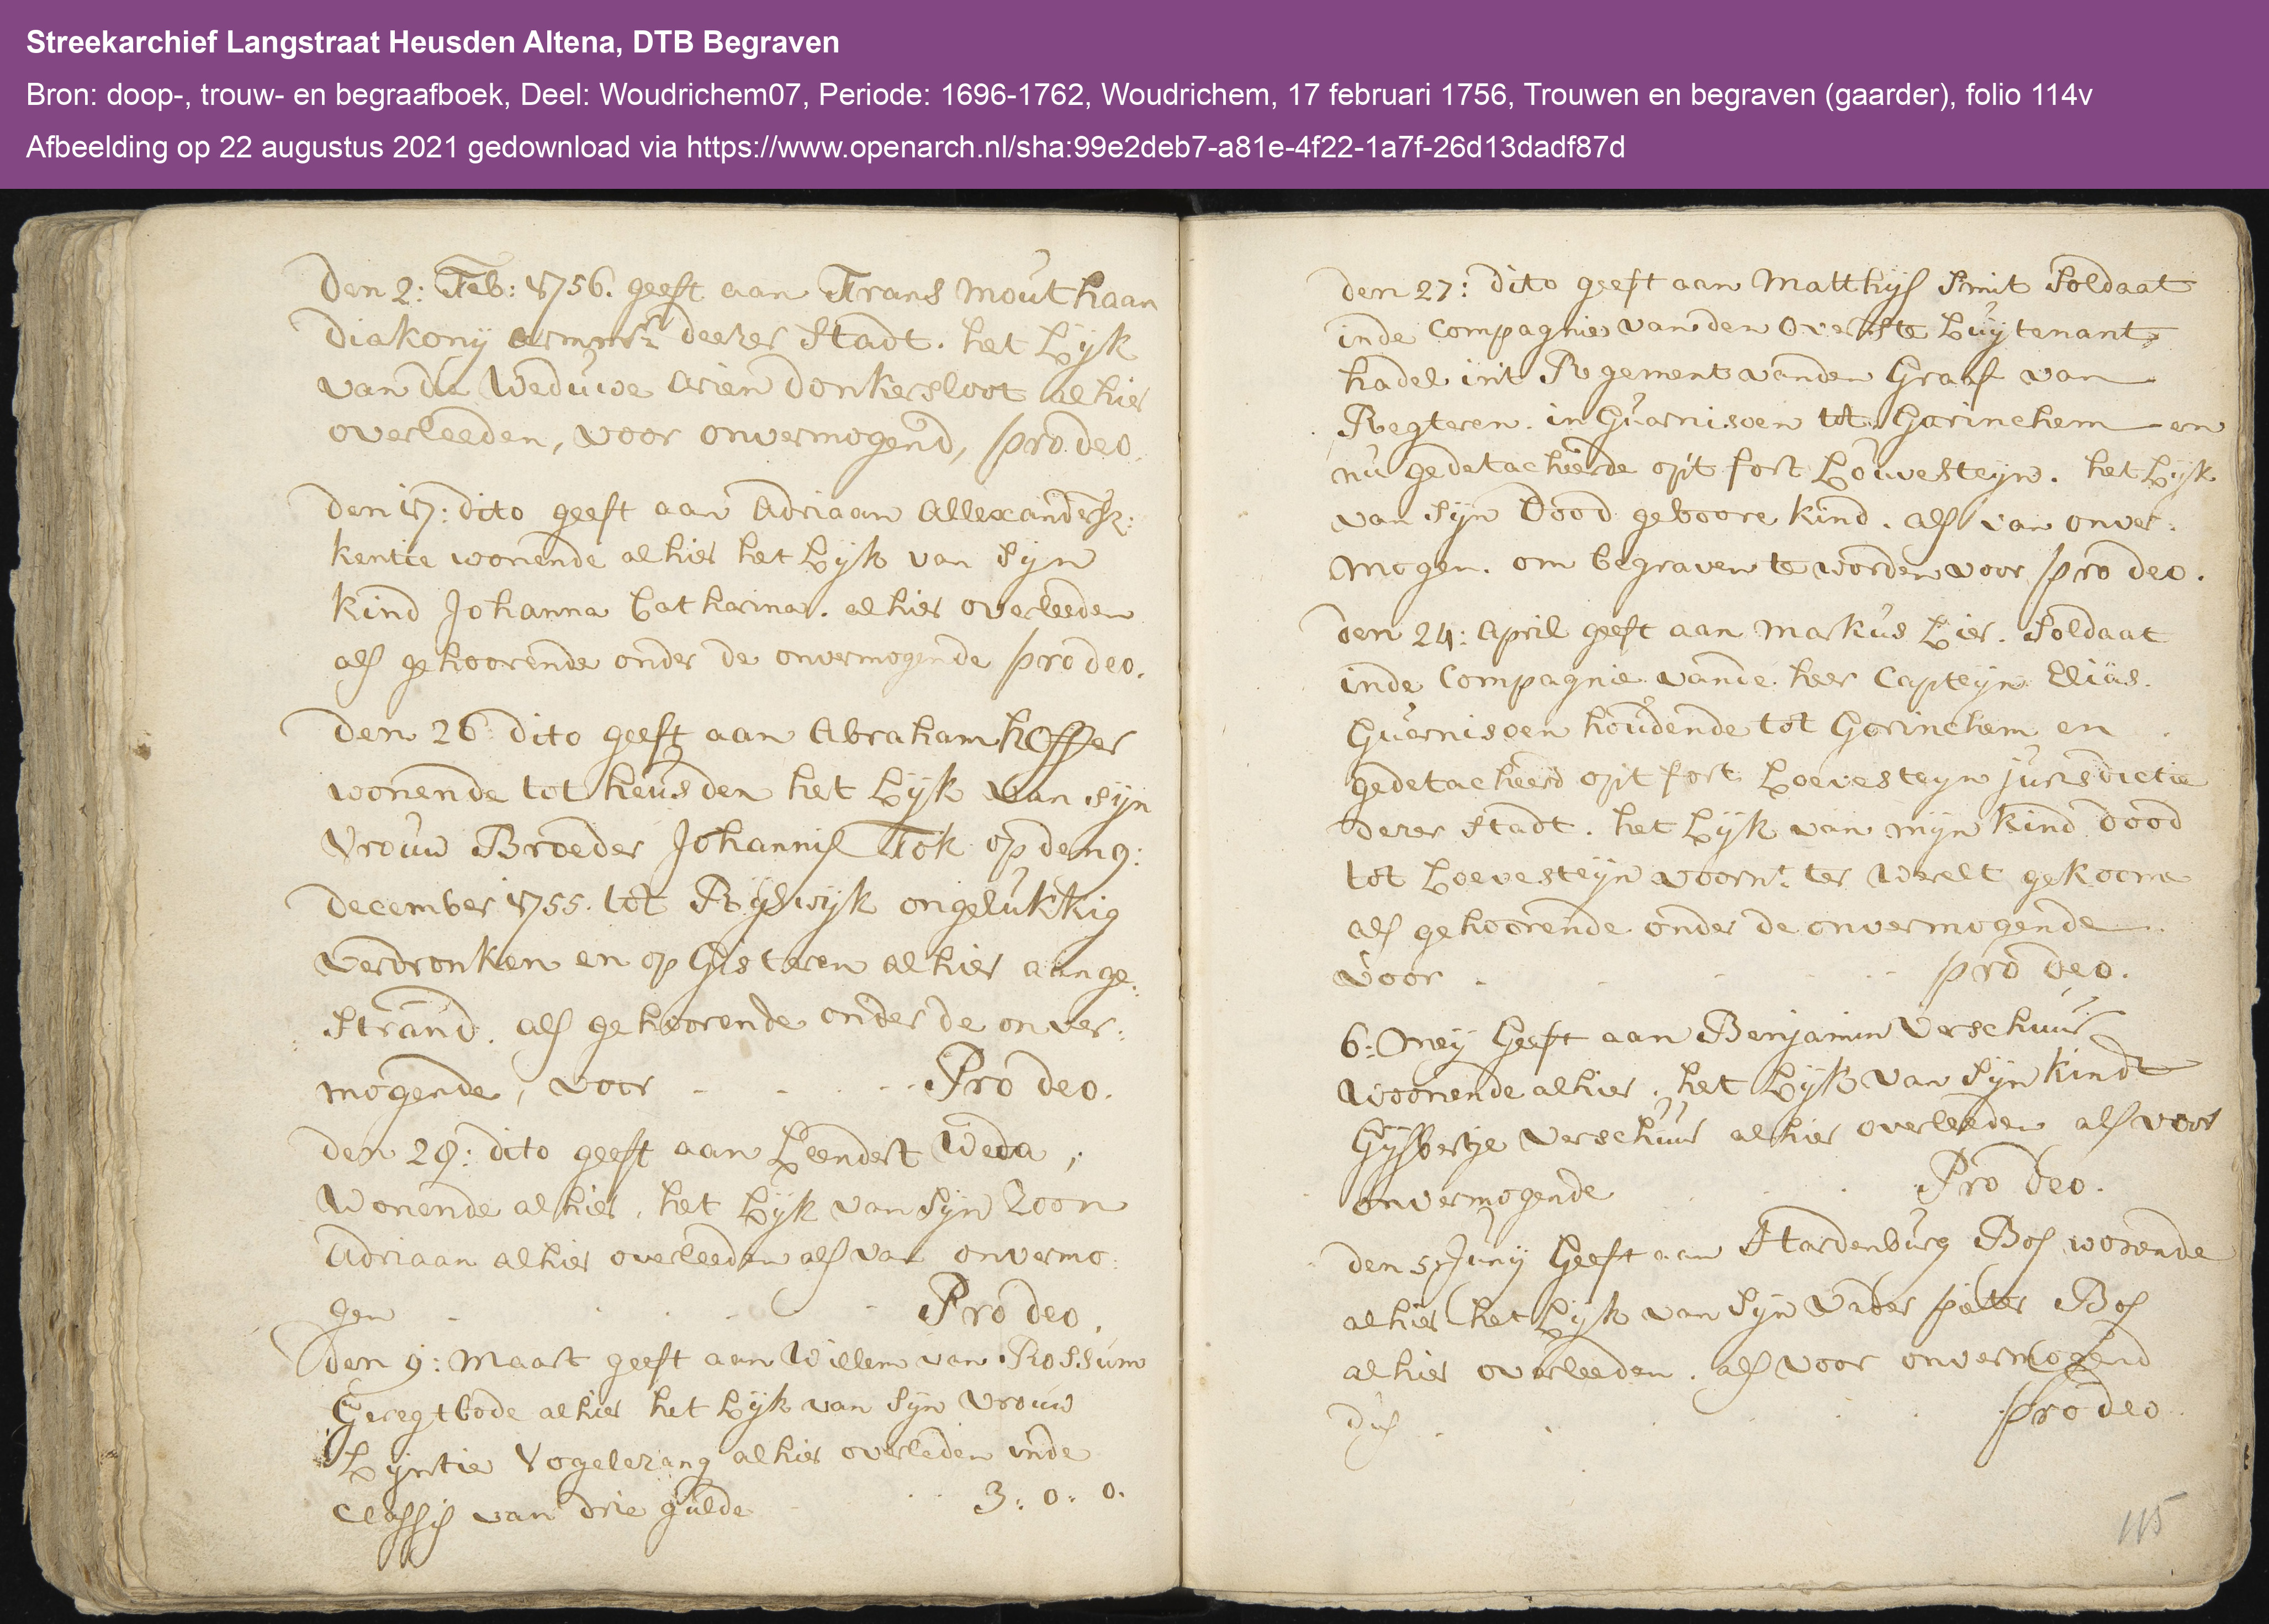 Streekarchief Langstraat Heusden Altena, DTB Begraven
Bron: doop-, trouw- en begraafboek, Deel: Woudrichem07, Periode: 1696-1762, Woudrichem, 17 februari 1756, Trouwen en begraven (gaarder), folio 114v
Afbeelding op 22 augustus 2021 gedownload via https://www.openarch.nl/sha:99e2deb7-a81e-4f22-1a7f-26d13dadf87d
Den 2: Feb: 1756. geeft aan Frans Mouthaan
Diakony armmr deezer Stadt. het Lyk
van de Weduwe Arien Donkersloot alhier
overleeden, voor onvermogend, pro deo.
Den 17: dito geeft aan Adriaan Allexandersz:
kentie wonende alhier het Lyk van Syn
kind Johanna Catharina. alhier overleeden
als gehoorende onder de onvermogende pro deo.
Den 26 dito geeft aan Abraham hoffer
wonende tot heusden het Lyk van syn
Vrouw Broeder Johannis Tok op den 9:
December 1755. tot Ryswyk ongelukkig
verdronken en op Gisteren alhier aange:
Strand. als gehoorende onder de onver:
mogende, voor - - - Pro deo.
Den 29: dito geeft aan Leendert Weda,
Wonende alhier, het Lyk van Syn Zoon
Adriaan alhier overleeden als van onvermo:
gen - - - Pro deo.
Den 9: Maart geeft aan Willem van Rossum
Geregtbode alhier het Lyk van Syn vrouw
Lyntie Vogelezang alhier overleden inde
Classis van drie gulde 3: 0: 0.
Den 27: dito geeft aan Matthys Smit Soldaat
inde Compagnie van den Overste Luytenant
hadel in't Regement vanden Graaf van
Regteren. in Guarnisoen tot Gorinchem en
nu gedetacheerde opt fort Louvesteyn. het Lyk
van Syn Dood geboore kind. als van onver:
mogen. om begraven te worden voor pro deo.
Den 24: April geeft aan Markus Lier. Soldaat
inde Compagnie vande heer Capteyn Elias.
Guernisoen houdende tot Gorinchem en
gedetacheerd opt fort Loevesteyn jurisdictie
dezer Stadt. het Lyk van myn kind dood
tot Loevesteyn voornt. ter werelt gekoome
als gehoorende onder de onvermogende
voor - - - pro deo.
6: Mey Geeft aan Benjamin Verschuur
Woonende alhier. het Lyk van Syn kindt
Gysbertje Verschuur alhier overleeden als voor
onvermogende Pro deo.
Den 5: Juny Geeft aan Hardenburg Bos wonende
alhier het Lyk van Syn Vader pieter Bos
alhier overleeden. als voor onvermogend
dus - - - pro deo.
115